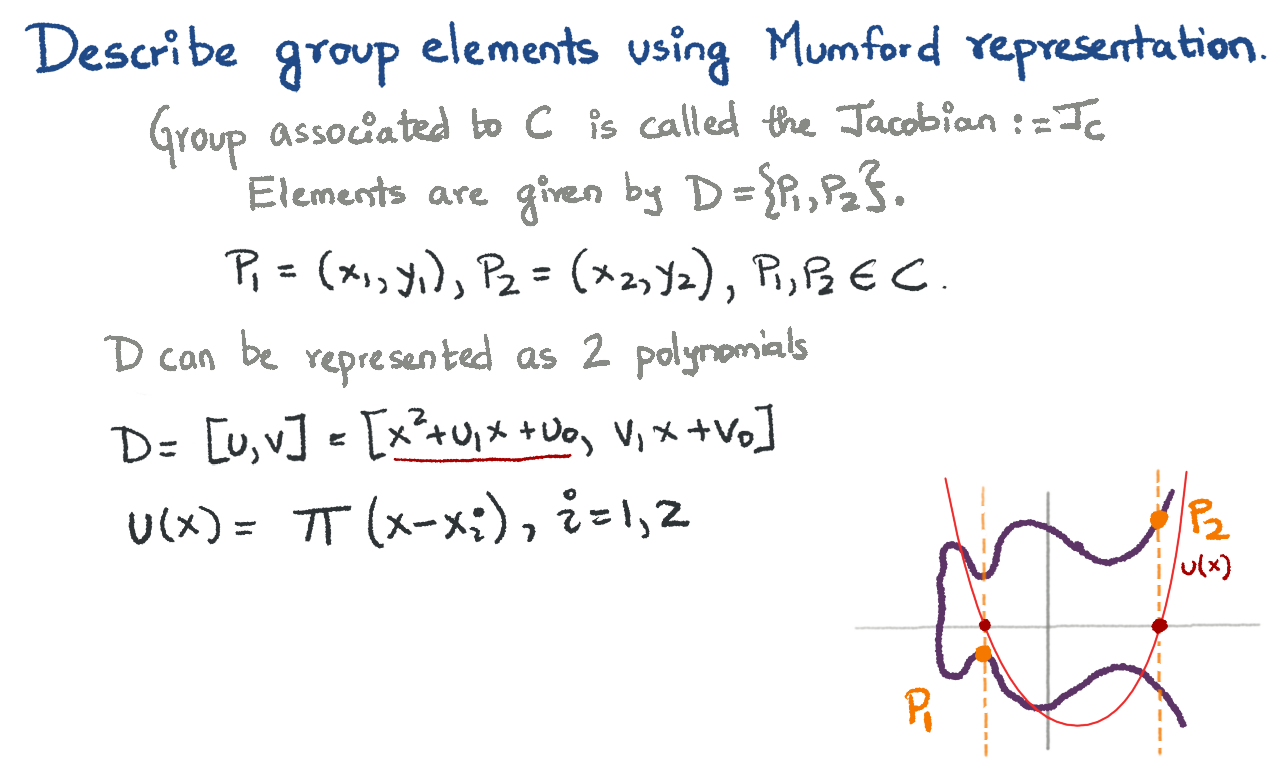 Describe group elements using Mumford representation.
Group associated to C is called the Jacobian := J_C
Elements are given by D = {P₁, P₂}.
P₁ = (x₁, y₁), P₂ = (x₂, y₂), P₁, P₂ ∈ C.
D can be represented as 2 polynomials
D = [u, v] = [x² + u₁x + u₀, v₁x + v₀]
u(x) = π (x - xᵢ), i = 1, 2
P₂
u(x)
P₁